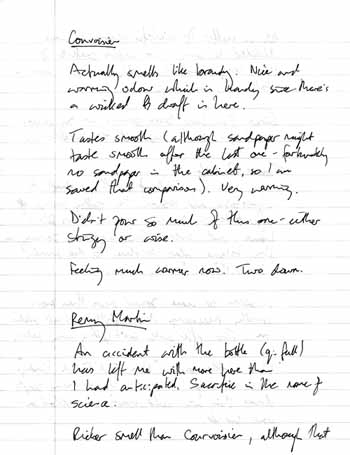 Courvoisier
Actually smells like brandy. Nice and
warming odour which is handy since there's
a wicked draft in here.
Tastes smooth (although sandpaper might
taste smooth after the last one - fortunately
no sandpaper in the cabinet, so I am
saved that comparison). Very warming.
Didn't pour so much of this one - either
stingy or wise.
Feeling much warmer now. Two down.
Remy Martin
An accident with the bottle (q. full)
has left me with more here than
I had anticipated. Sacrifice in the name of
science.
Richer smell than Courvoisier, although that